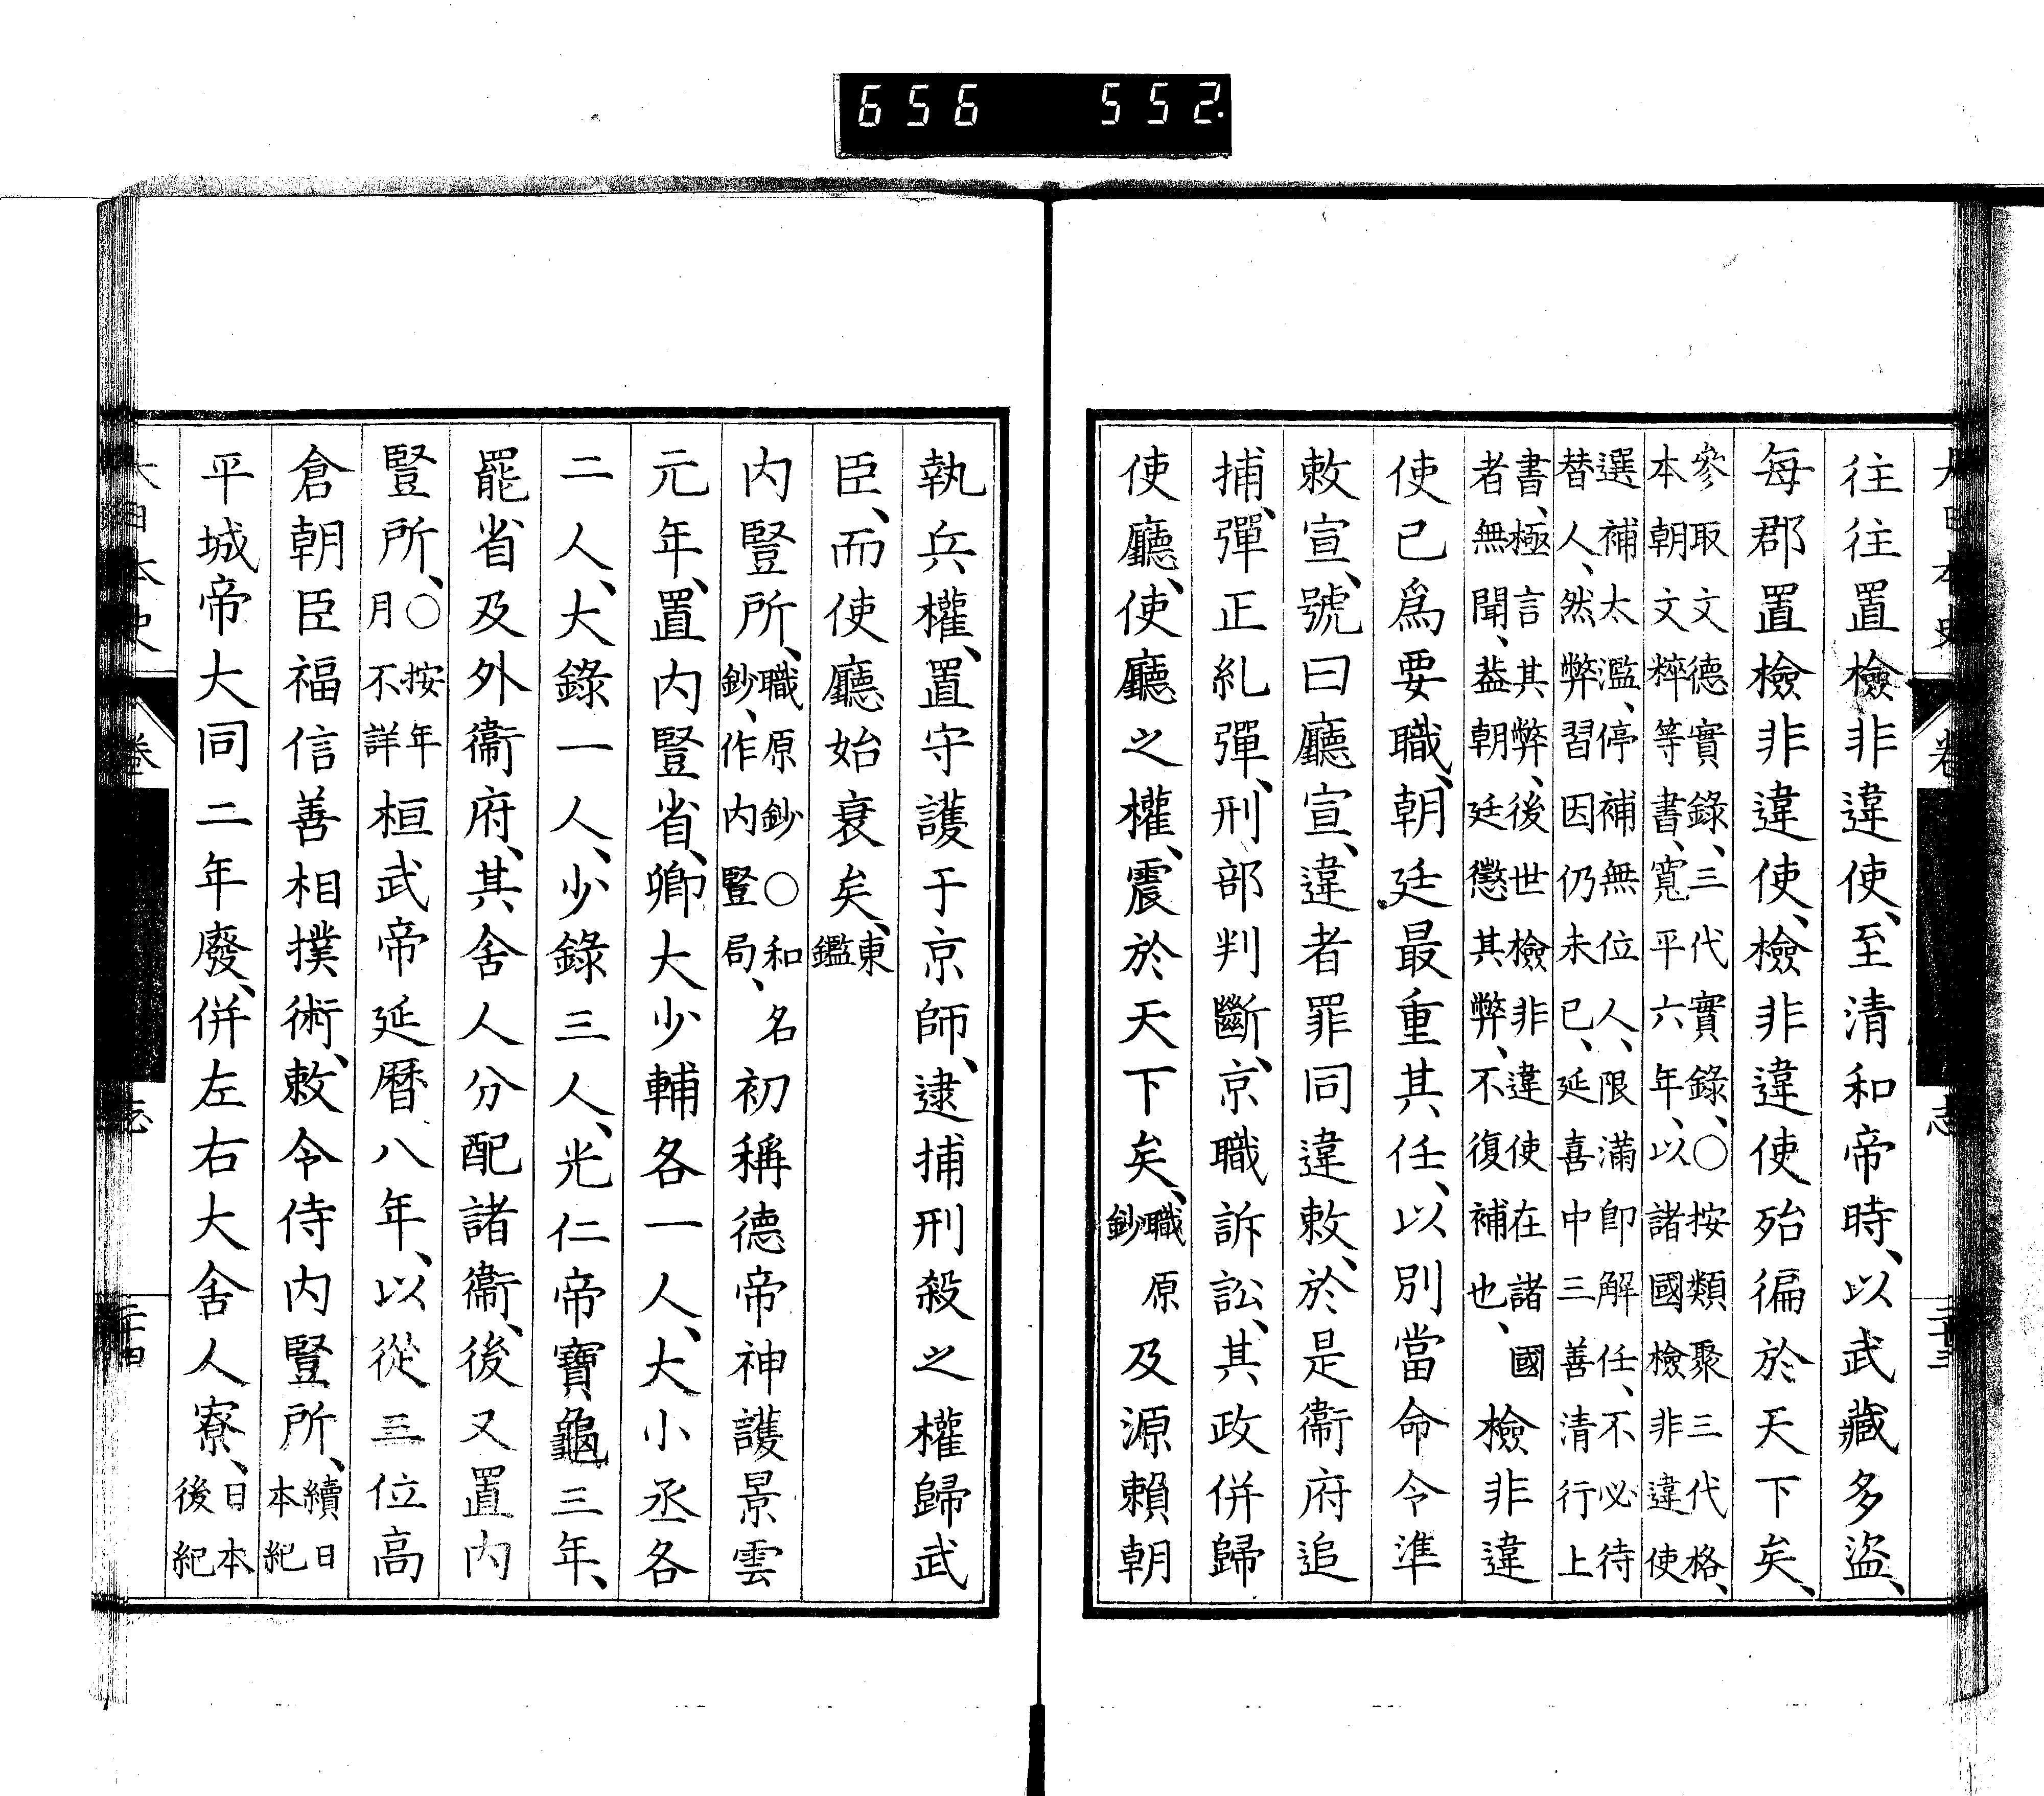 656 552.
大日本史 卷 志 二十三
往往置檢非違使、至清和帝時、以武藏多盜、
每郡置檢非違使、檢非違使殆徧於天下矣、
參取文德實錄、三代實錄、○按類聚三代格、
本朝文粹等書、寬平六年、以諸國檢非違使
選補太濫、停補無位人、限滿卽解任、不必待
替人、然弊習因仍未已、延喜中三善清行上
書、極言其弊、後世檢非違使在諸國
者、無聞、蓋朝廷懲其弊、不復補也、檢非違
使已爲要職、朝廷最重其任、以別當命令準
敕宣、號曰廳宣、違者罪同違敕、於是衞府追
捕、彈正糺彈、刑部判斷、京職訴訟、其政併歸
使廳、使廳之權、震於天下矣、職原鈔及源賴朝
執兵權、置守護于京師、逮捕刑殺之權歸武
臣、而使廳始衰矣、東鑑
內豎所、職原鈔○和名鈔、作內豎局、初稱德帝神護景雲
元年、置內豎省、卿大少輔各一人、大小丞各
二人、大錄一人、少錄三人、光仁帝寶龜三年、
罷省及外衞府、其舍人分配諸衞、後又置內
豎所、○按年月不詳桓武帝延曆八年、以從三位高
倉朝臣福信善相撲術、敕令侍內豎所、續日本紀
平城帝大同二年廢、併左右大舍人寮、日本後紀
大日本史 卷 志 二十四